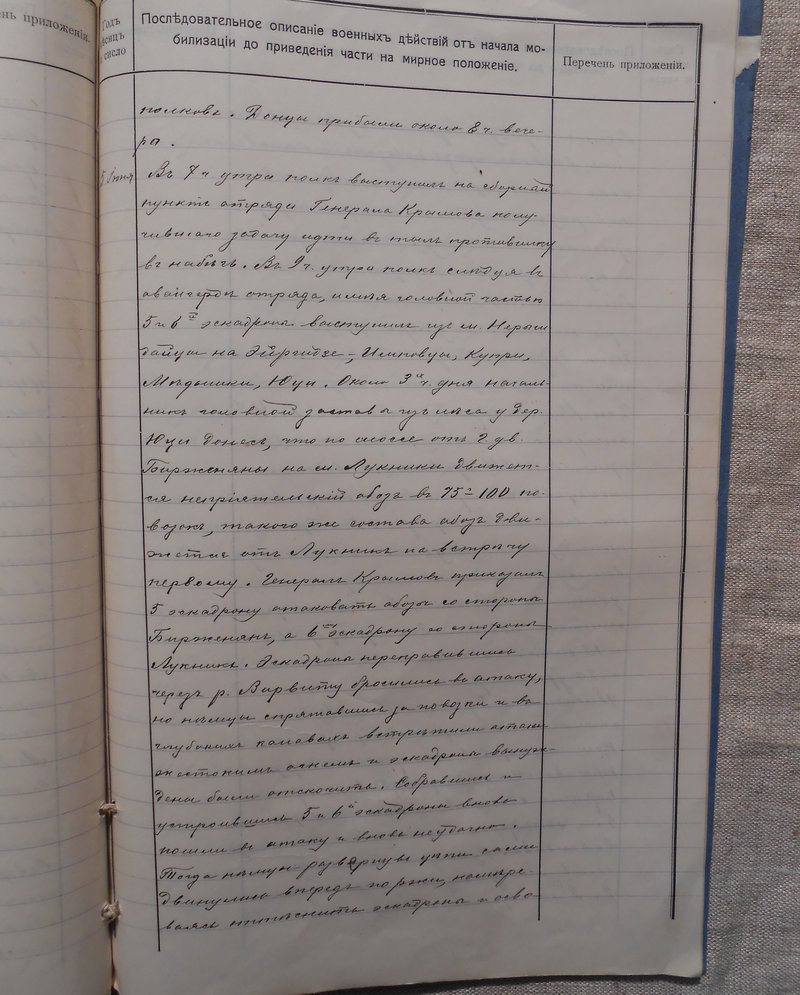 ень приложеній.
Годъ
мѣсяцъ
и число
Послѣдовательное описаніе военныхъ дѣйствій отъ начала мо-
билизаціи до приведенія части на мирное положеніе.
Перечень приложеній.
полковъ. Донцы прибыли около 8 ч. вече-
ра.
5 Іюня
Въ 7 ч утра полкъ выступилъ на сборный
пунктъ отряда Генерала Крымова полу-
чившаго задачу идти въ тылъ противнику
въ набѣгъ. Въ 9 ч. утра полкъ слѣдуя въ
авангардѣ отряда, имѣя головной частью
5 и 6й эскадроны выступилъ изъ м.
на Эйргидзе-, Купри,
Мѣдышки, Юци. Около 3х ч. дня началь-
никъ головной заставы изъ лѣса у дер.
Юци донесъ, что по шоссе отъ г. дв.
Бирженяны на м. Лукники движет-
ся непріятельскій обозъ въ 75-100 по-
возокъ, такого же состава обозъ дви-
жется отъ Лукникъ на встрѣчу
первому. Генералъ Крымовъ приказалъ
5 эскадрону атаковать обозъ со стороны
Бирженянъ, а 6му эскадрону со стороны
Лукникъ. Эскадроны переправившись
черезъ р. Вирвиту бросились въ атаку,
но нѣмцы спрятавшись за повозки и въ
глубокихъ канавахъ встрѣтили атаки
жестокимъ огнемъ и эскадроны вынуж-
дены были отскочить. Собравшись и
устроившись 5 и 6й эскадроны вновь
пошли въ атаку и вновь неудачно.
Тогда нѣмцы развернувъ цѣпи сами
двинулись впередъ по ржи, намѣре-
ваясь эскадроны и осво-